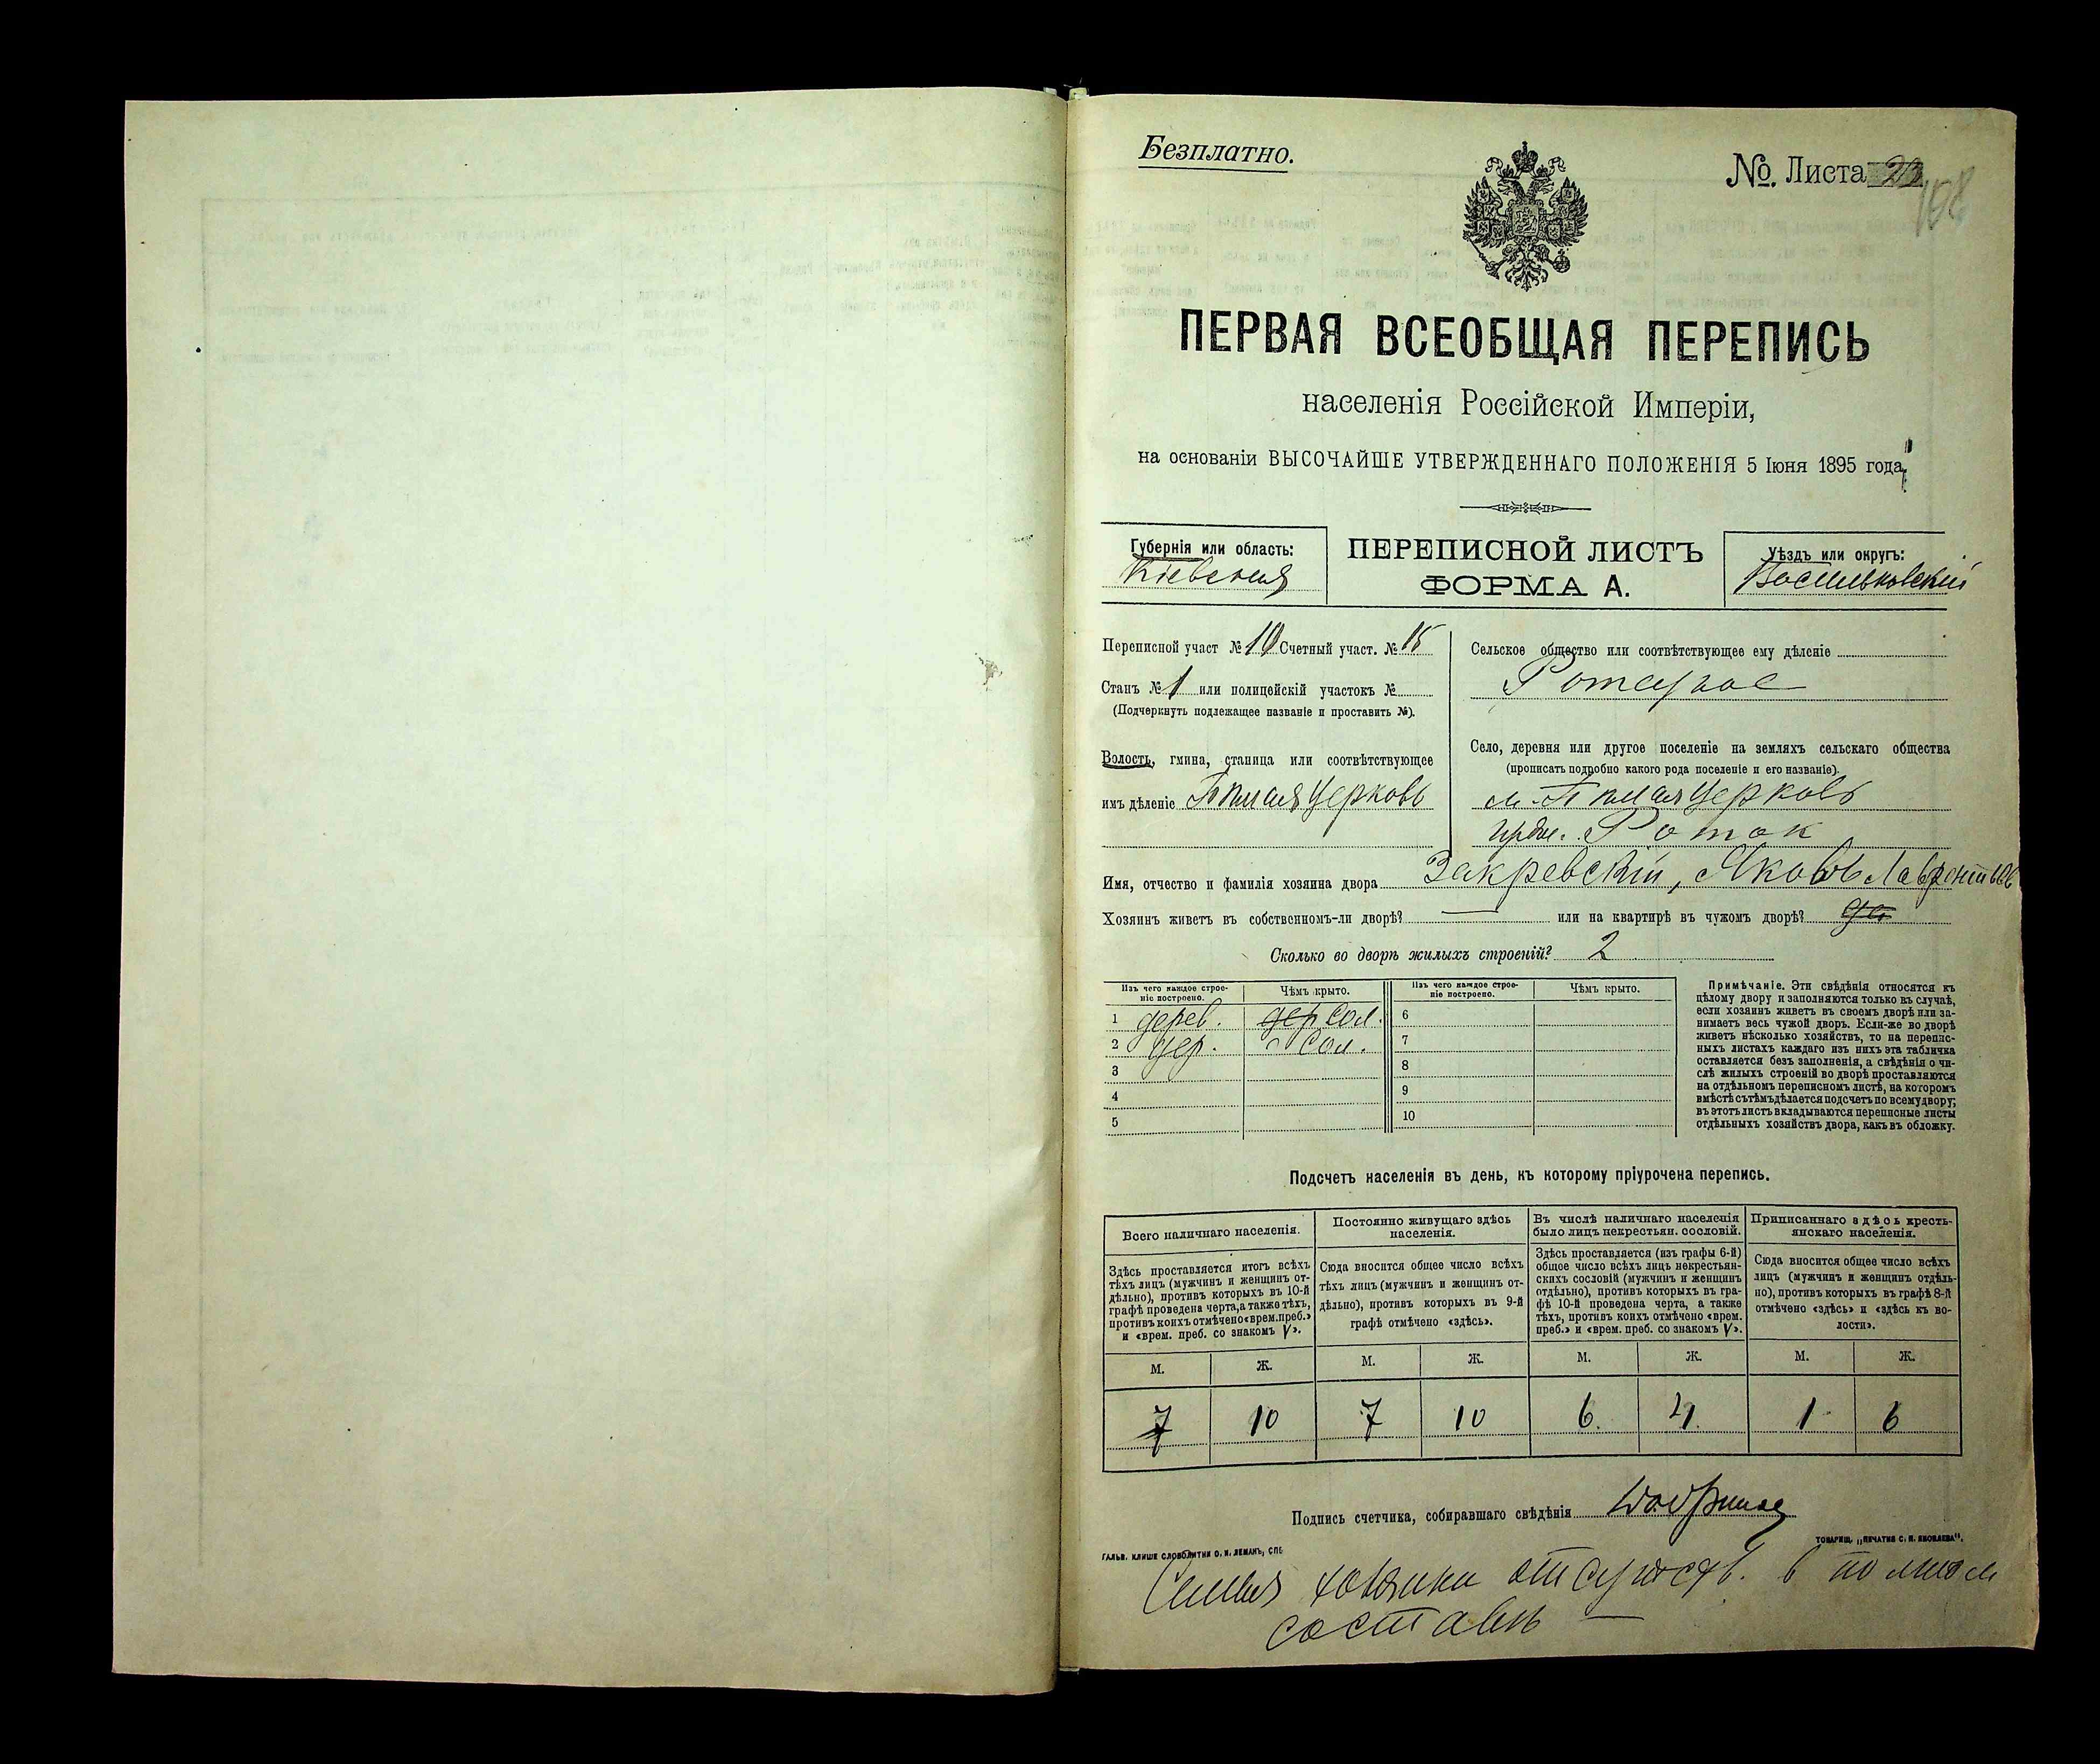 Безплатно.
№ Листа 23
168
ПЕРВАЯ ВСЕОБЩАЯ ПЕРЕПИСЬ
населенія Россійской Имперіи,
на основаніи ВЫСОЧАЙШЕ УТВЕРЖДЕННАГО ПОЛОЖЕНІЯ 5 Іюня 1895 года
Губернія или область:
Кіевская
ПЕРЕПИСНОЙ ЛИСТЪ
ФОРМА А.
Уѣздъ или округъ:
Васильковскій
Переписной участ № 10 Счетный участ. № 15
Станъ № 1 или полицейскій участокъ №
(Подчеркнуть подлежащее названіе и проставить №).
Волость, гмина, станица или соотвѣтствующее
имъ дѣленіе Бѣлая Церковь
Сельское общество или соотвѣтствующее ему дѣленіе
Ротское
Село, деревня или другое поселеніе на земляхъ сельскаго общества
(прописать подробно какого рода поселеніе и его названіе).
м. Бѣлая Церковь
Роток
Имя, отчество и фамилія хозяина двора Закревскій, Яковъ Лаврентьев
Хозяинъ живетъ въ собственномъ-ли дворѣ? — или на квартирѣ въ чужомъ дворѣ? да
Сколько во дворѣ жилыхъ строеній? 2
Изъ чего каждое строе-
ніе построено.
Чѣмъ крыто.
Изъ чего каждое строе-
ніе построено.
Чѣмъ крыто.
1 дерев. дер сол. 6
2 дер. сол. 7
3 8
4 9
5 10
Примѣчаніе. Эти свѣдѣнія относятся къ
цѣлому двору и заполняются только въ случаѣ,
если хозяинъ живетъ въ своемъ дворѣ или за-
нимаетъ весь чужой дворъ. Если-же во дворѣ
живетъ нѣсколько хозяйствъ, то на перепис-
ныхъ листахъ каждаго изъ нихъ эта табличка
оставляется безъ заполненія, а свѣдѣнія о чи-
слѣ жилыхъ строеній во дворѣ проставляются
на отдѣльномъ переписномъ листѣ, на которомъ
вмѣстѣ съ тѣмъ дѣлается подсчетъ по всему двору;
въ этотъ листъ вкладываются переписные листы
отдѣльныхъ хозяйствъ двора, какъ въ обложку.
Подсчетъ населенія въ день, къ которому пріурочена перепись.
Всего наличнаго населенія.
Здѣсь проставляется итогъ всѣхъ
тѣхъ лицъ (мужчинъ и женщинъ от-
дѣльно), противъ которыхъ въ 10-й
графѣ проведена черта, а также тѣхъ,
противъ коихъ отмѣчено «врем. преб.»
и «врем. преб. со знакомъ V».
Постоянно живущаго здѣсь
населенія.
Сюда вносится общее число всѣхъ
тѣхъ лицъ (мужчинъ и женщинъ от-
дѣльно), противъ которыхъ въ 9-й
графѣ отмѣчено «здѣсь».
Въ числѣ наличнаго населенія
было лицъ некрестьян. сословій.
Здѣсь проставляется (изъ графы 6-й)
общее число всѣхъ лицъ некрестьян-
скихъ сословій (мужчинъ и женщинъ
отдѣльно), противъ которыхъ въ гра-
фѣ 10-й проведена черта, а также
тѣхъ, противъ коихъ отмѣчено «врем.
преб.» и «врем. преб. со знакомъ V».
Приписаннаго здѣсь кресть-
янскаго населенія.
Сюда вносится общее число всѣхъ
лицъ (мужчинъ и женщинъ отдѣль-
но), противъ которыхъ въ графѣ 8-й
отмѣчено «здѣсь» и «здѣсь къ во-
лости».
М. Ж. М. Ж. М. Ж. М. Ж.
7 10 7 10 6. 4. 1 6
Подпись счетчика, собиравшаго свѣдѣнія
ГАЛЬВ. КЛИШЕ СЛОВОЛИТНИ О. И. ЛЕМАНЪ, СПБ
ТОВАРИЩ. „ПЕЧАТНЯ С. П. ЯКОВЛЕВА".
Семья хозяина отсутств. в полном
составѣ —